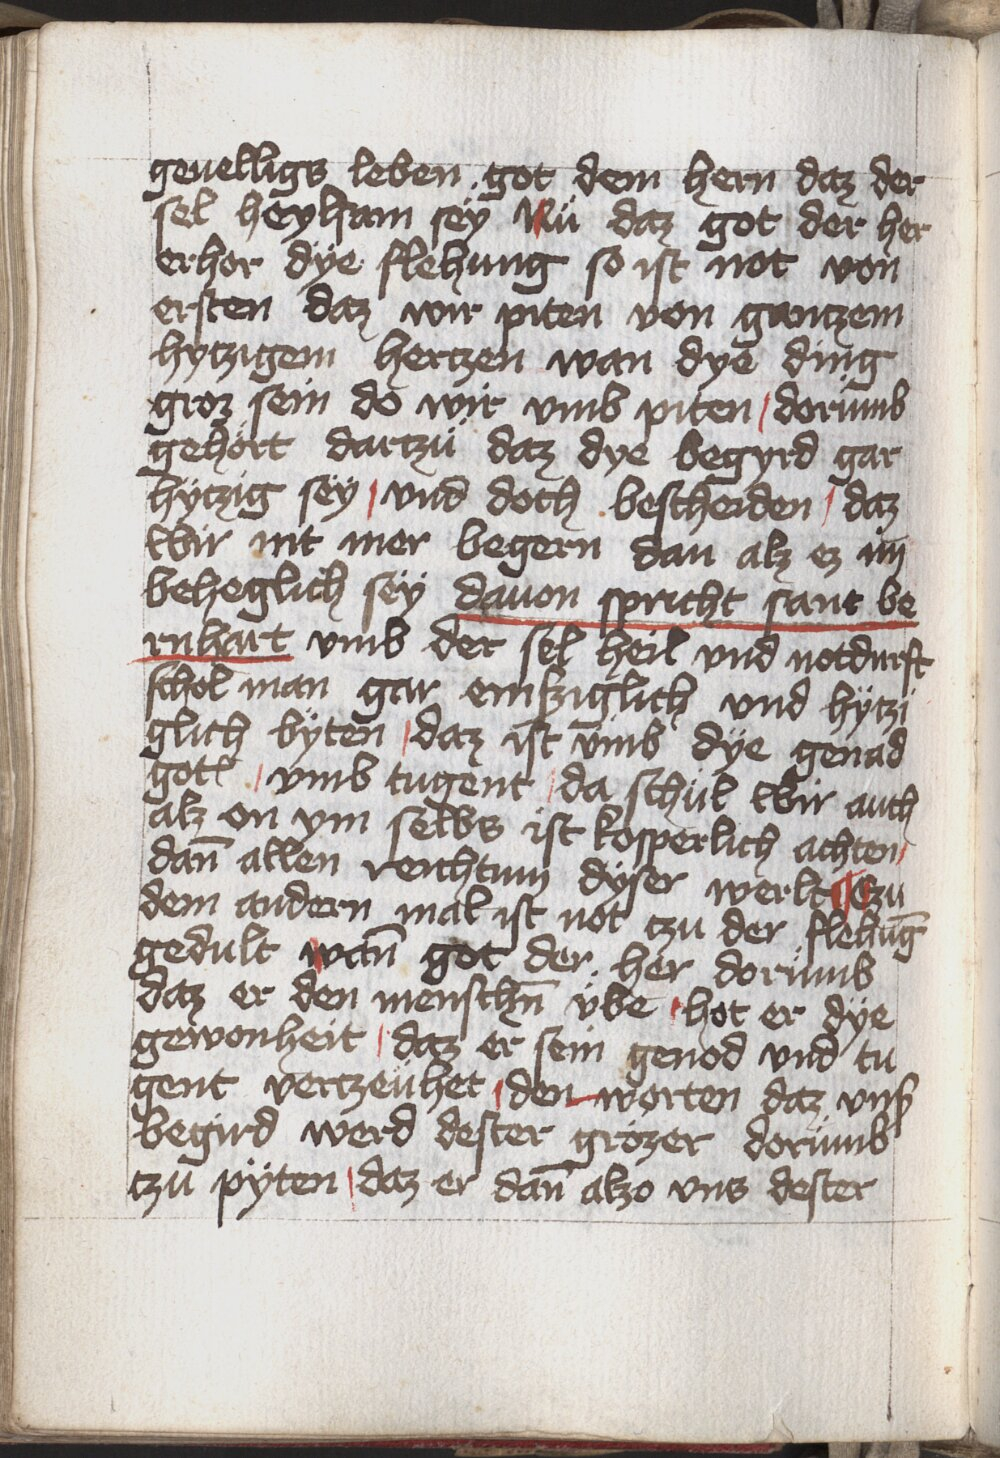 geuelligs leben got dem hern daz der
sel heylsam sey Nü daz got der her
erhor dÿe flehung so ist not von
ersten daz wir piten von gantzem
hytzigem hertzen wan dye ding
groz sein do wir vmb piten / dorümb
gehört dartzü daz dye begyrd gar
hÿtzig sey / vnd doch bescheiden / daz
wir nit mer begern dan alz ez im
beheglich seÿ dauon spricht sant be
rnhart vmb der sel heil vnd notdurft
schol man gar emssziglich vnd hÿtzi
glich bÿten / daz ist vmb dÿe genad
gotz / vmb tugent / da schül wir auch
alz on ym selbs ist kosperlich achten /
dan̄ allen reichtum dÿser werlt ¶ Czu
dem andern mal ist not czu der flehūg
gedult wan̄ got der her dorümb
daz er den menschn̄ ÿbe / hot er dÿe
gewonheit / daz er sein genod vnd tu
gent vertzeühet / den worten daz vnß
begird werd dester grözer dorümb
tzu pÿten / daz er dan̄ alzo vns dester